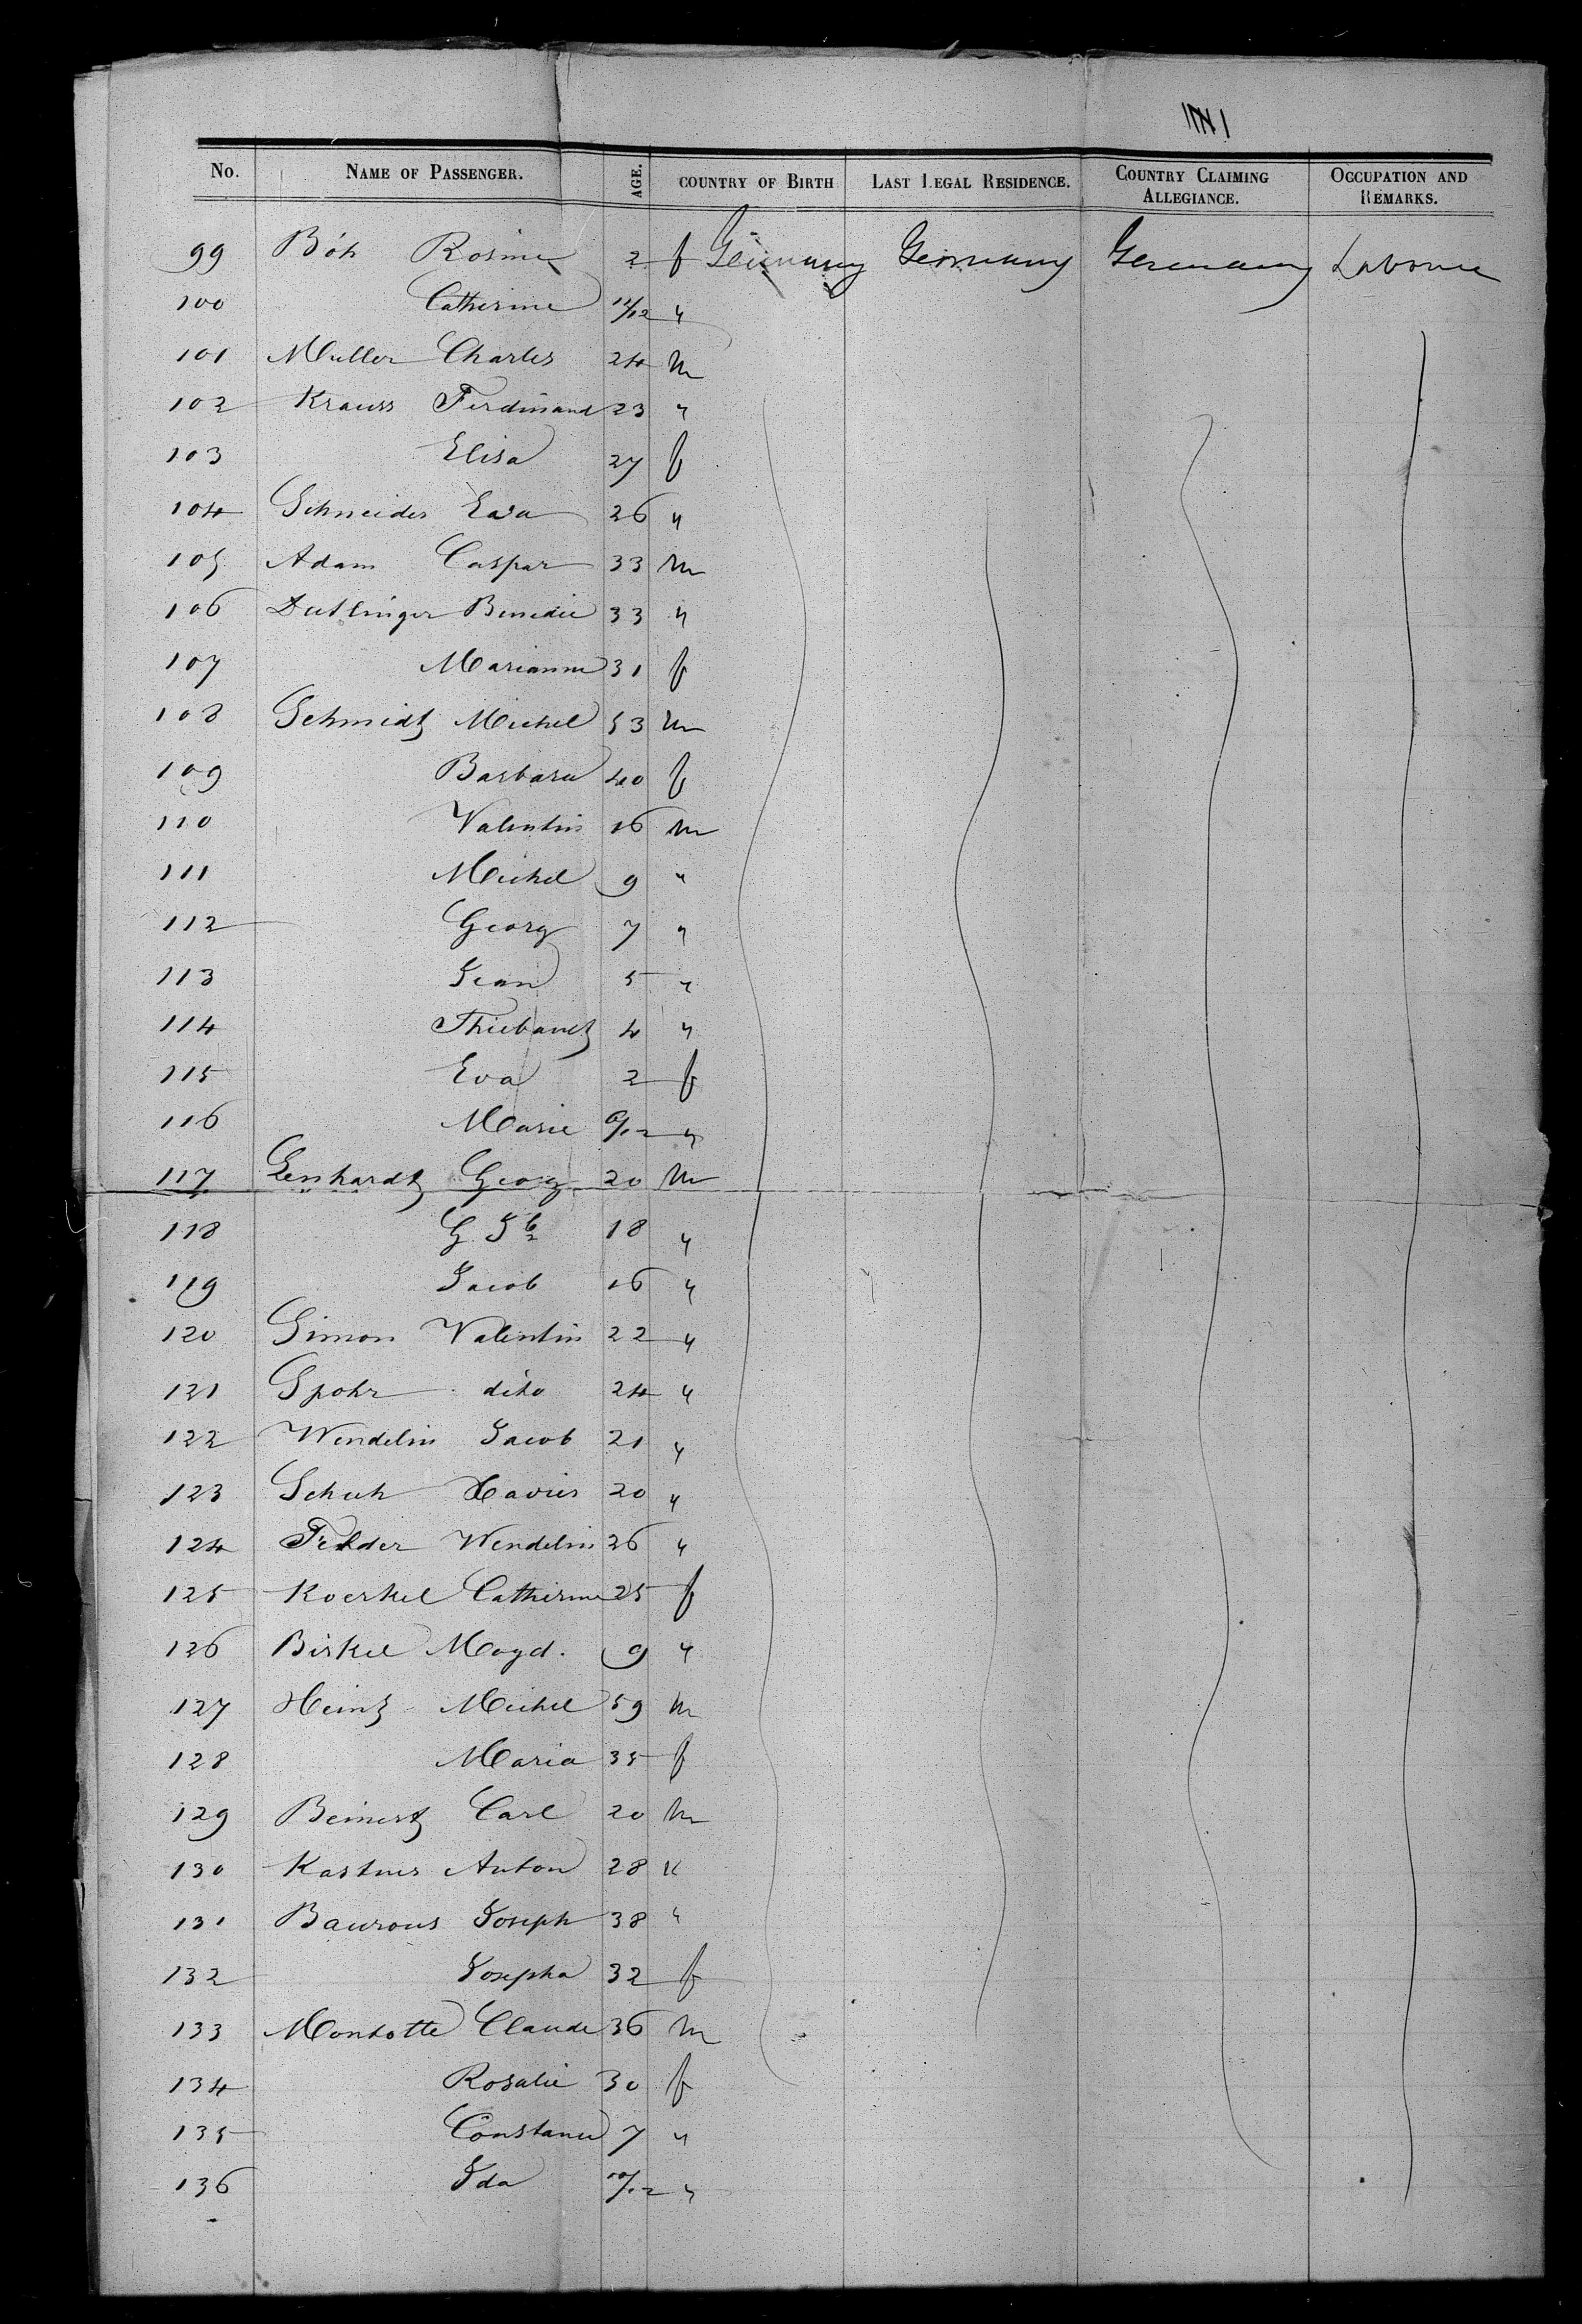 No. NAME OF PASSENGER. AGE. COUNTRY OF BIRTH LAST LEGAL RESIDENCE. COUNTRY CLAIMING ALLEGIANCE. OCCUPATION AND REMARKS.
99 Böh Rosine 2 f Germany Germany Germany
100 Catherine 11/12 "
101 Muller Charles 24 m
102 Krauss Ferdinand 23 "
103 Elisa 27 f
104 Schneider Eva 26 "
105 Adam Caspar 33 m
106 Dutlinger 33 "
107 Marianne 31 f
108 Schmidt Michel 53 m
109 Barbara 40 f
110 Valentin 16 m
111 Michel 9 "
112 Georg 7 "
113 Jean 5 "
114 4 "
115 Eva 2 f
116 Marie "
117 Lenhardt Georg 20 m
118 18 "
119 Jacob 16 "
120 Simon Valentin 22 "
121 Spohr dito 24 "
122 Wendelin Jacob 21 "
123 Schuh Xavier 20 "
124 Wendelin 26 "
125 Koerkel Catherine 25 f
126 Birkel Magd. 9 "
127 Heintz Michel 59 m
128 Maria 35 f
129 Beinertz Carl 20 m
130 Kastner Anton 28 "
131 Joseph 38 "
132 Josepha 32 f
133 Claude 36 m
134 Rosalie 30 f
135 Constance 7 "
136 Ida 10/12 "